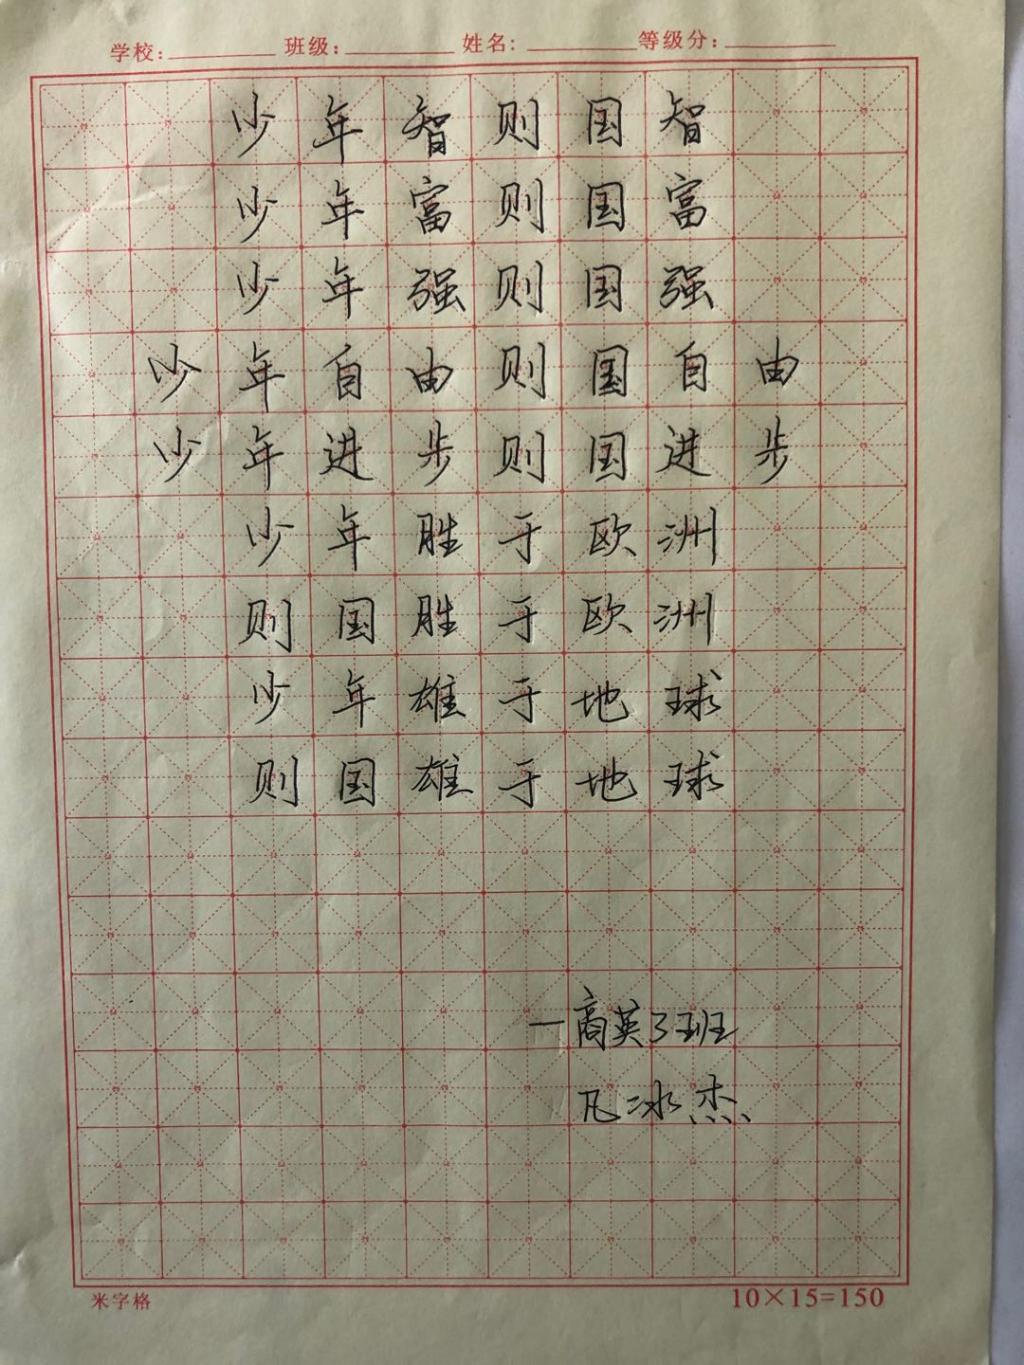 学校: 班级: 姓名: 等级分:
少年智则国智
少年富则国富
少年强则国强
少年自由则国自由
少年进步则国进步
少年胜于欧洲
则国胜于欧洲
少年雄于地球
则国雄于地球
一商英3班
凡冰杰
米字格 10×15=150